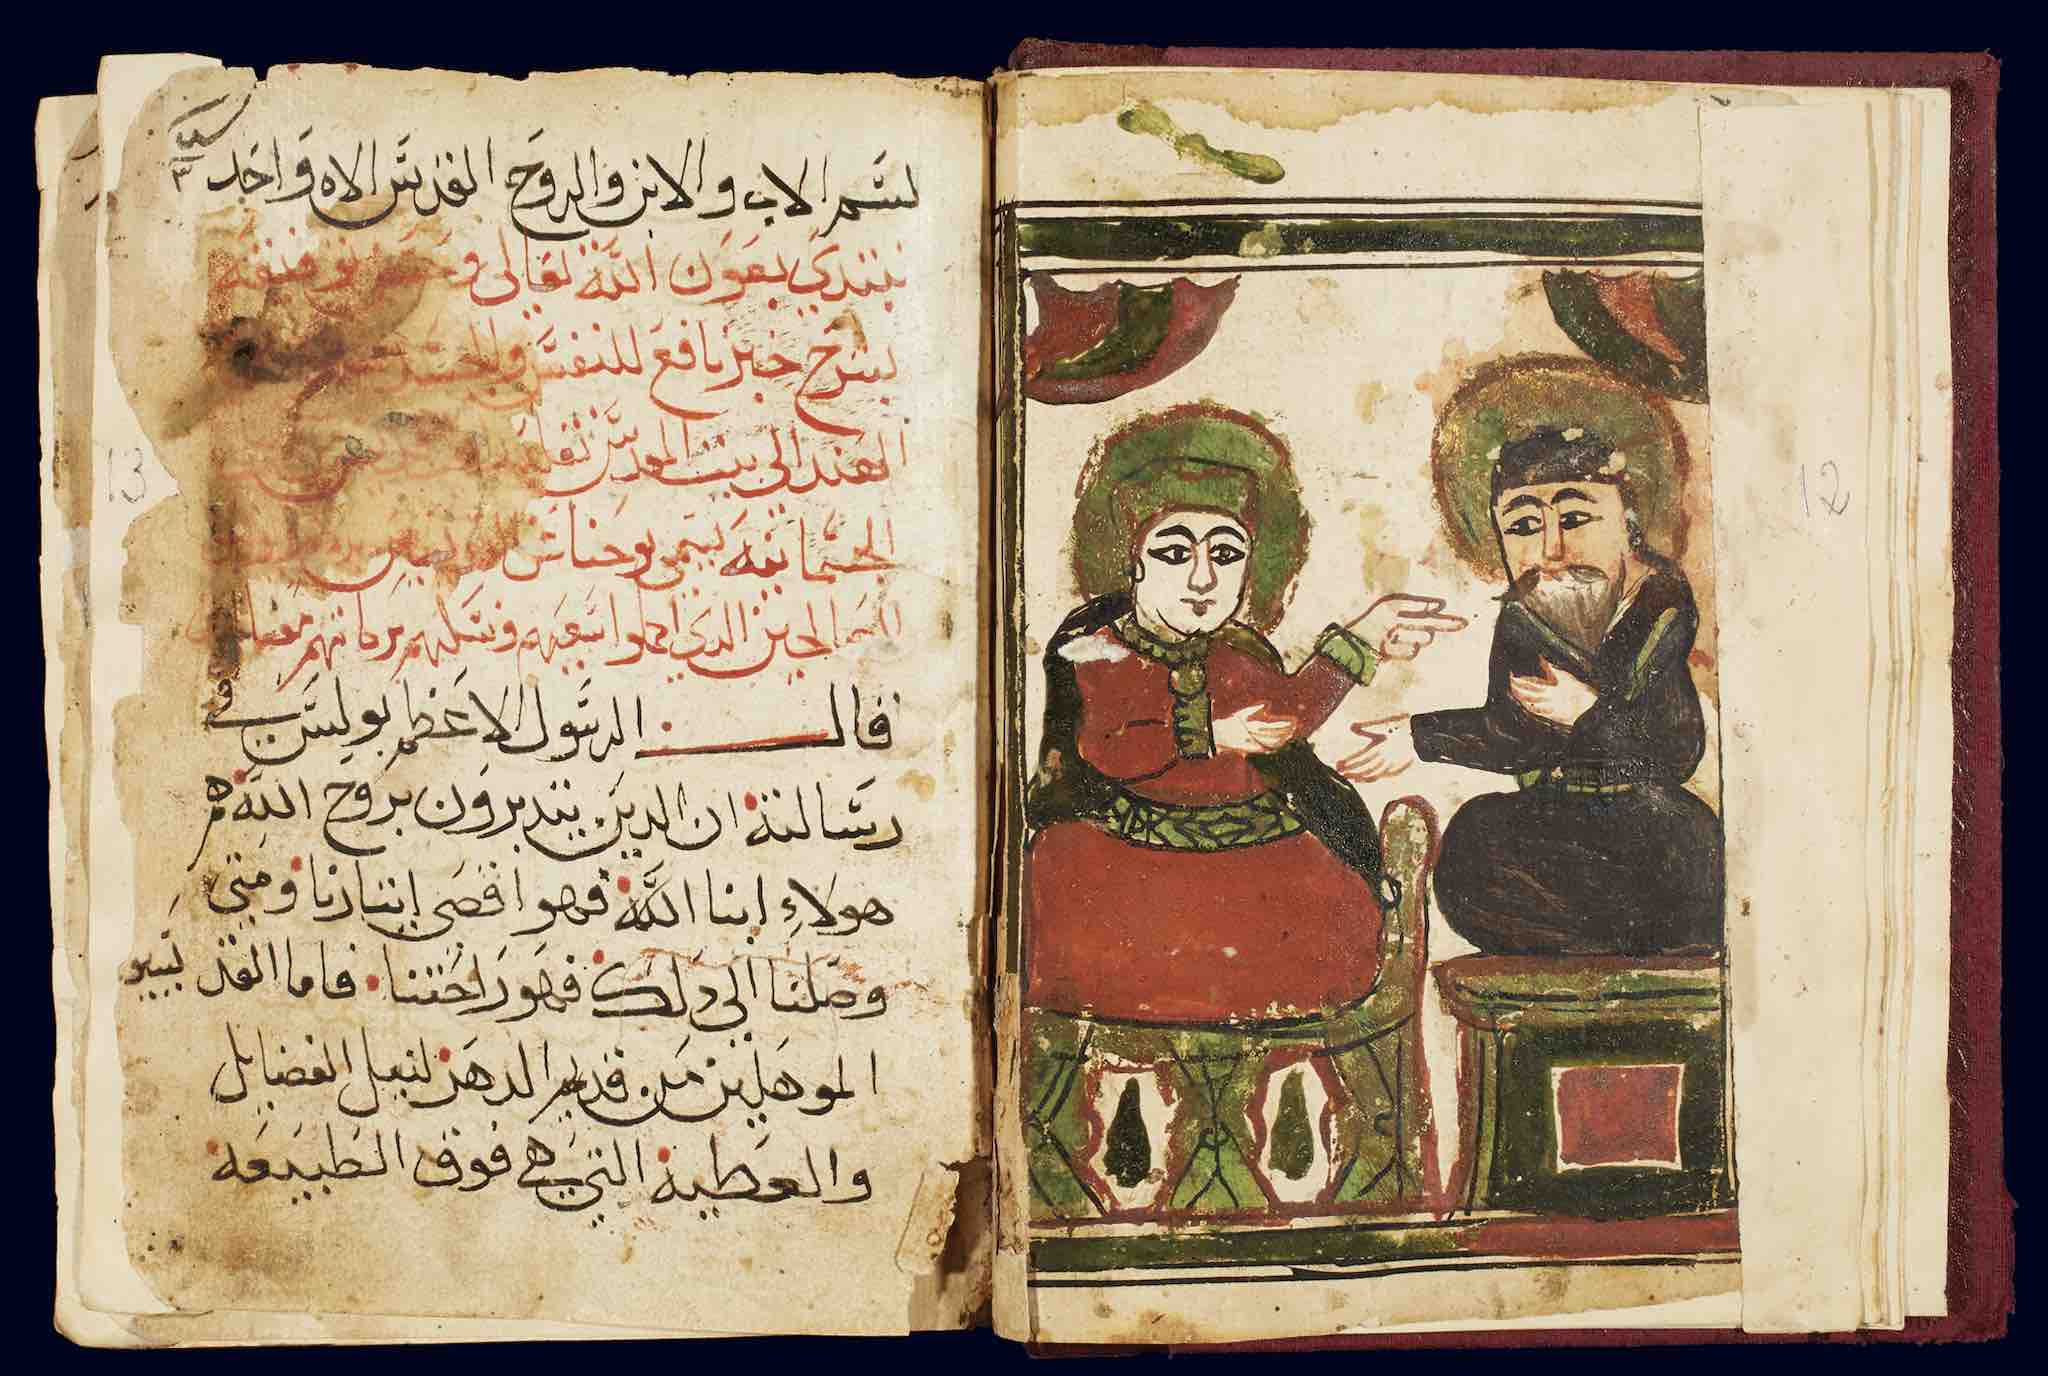 بسم الاب والابن والروح القدس الاه واحد
نبتدي بعون الله تعالى وحسن توفيقه
بشرح خبر نافع للنفس والجسد
الهند الى بيت المقدس نقله
الجسمانيه يسمى يوحنا
الصالحين الذي اكملوا سعيهم ونسلهم بركاتهم
قال الرسول الاعظم بولس في
رسالته ان الذين يتدبرون بروح الله هم
هولاء ابنا الله فهو اقصى ايثارنا ومتى
وصلنا الى ذلك فهو راحتنا فاما القديسيو
الموهلين من قديم الدهر لنيل الفضايل
والعطيه التي هي فوق الطبيعه
13
12